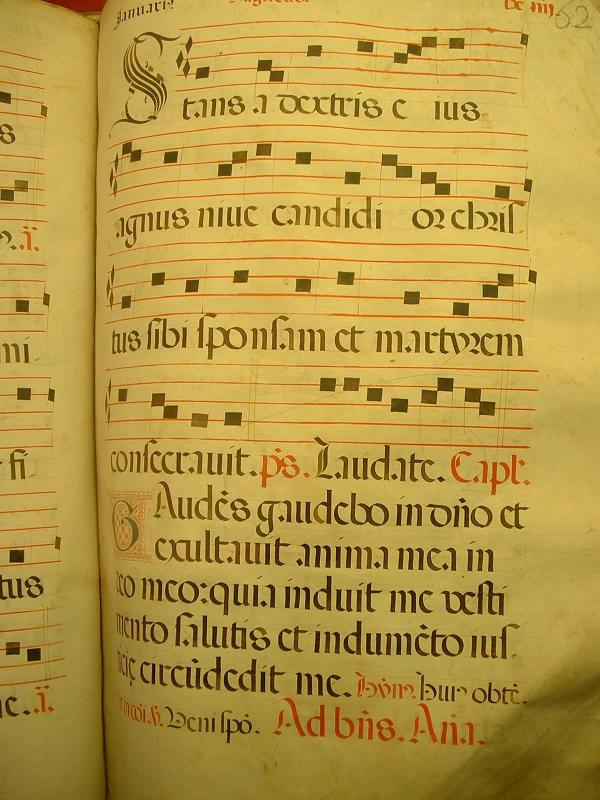 Januarij
52
Stans a dextris e ius
agnus niue candidi or chris
tus sibi sponsam et martyrem
consecrauit. ps. Laudate. Capl.
GAudēs gaudebo in dño et
exultauit anima mea in
deo meo: quia induit me vesti
mento salutis et indumēto ius
ticię circūdedit me. Hỹm. Huiꝰ obtē.
Veni spō. Ad bñs. Añа.
s
mi
fi
tus